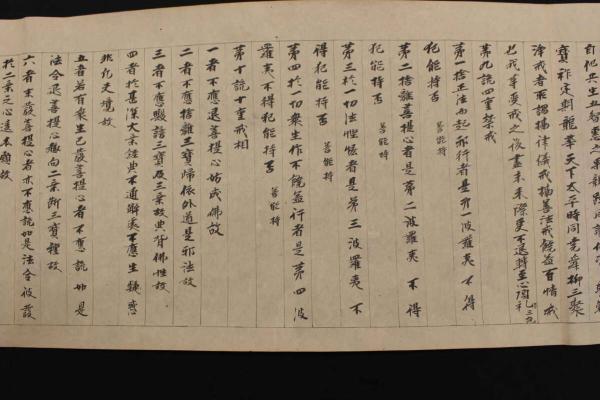 寶祚定判龍華天下太平時同堯舜抑三聚
淨戒者所謂攝律儀戒攝善法戒饒益有情戒
也我等受戒之後盡未來際更不退轉至心
第九説四重禁戒
第一捨正法而起邪行者是第一波羅夷不得
犯能持否 答能持
第二捨離菩提心者是第二波羅夷不得
犯能持否 答能持
第三於一切法慳悋者是第三波羅夷不
得犯能持否 答能持
第四於一切衆生作不饒益行者是第四波
羅夷不得犯能持否 答能持
第十説十重戒相
一者不應退菩提心妨成佛故
二者不應捨離三寶歸依外道是邪法故
三者不應毀謗三寶及三乘教典背佛性故
四者於甚深大乘經典不通解處不應生疑惑
非凡夫境故
五者若有衆生已發菩提心者不應説如是
法令退菩提心趣向二乘斷三寶種故
六者未發菩提心者亦不應説如是法令彼發
於二乘之心違本願故